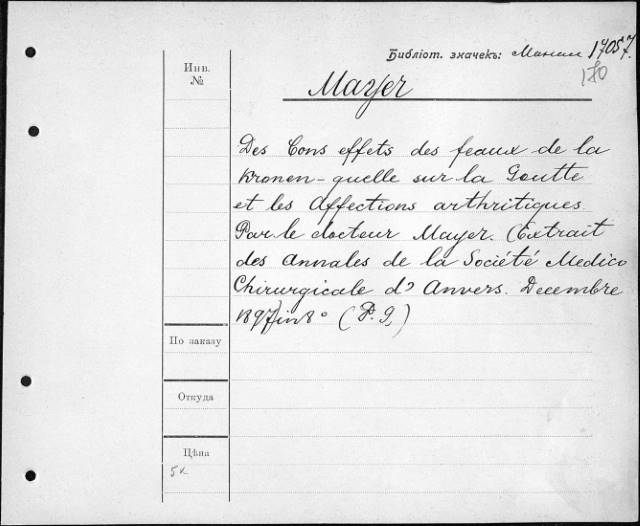 Библіот. значекъ: 17057.
170
Инв.
№
Mayer
Des bons effets des feaux de la
Kronen-quelle sur la Goutte
et les Affections arthritiques.
Par le docteur Mayer. (Extrait
des Annales de la Société Medico
Chirurgicale d' Anvers. Decembre
1897) in 8° (P. 9,)
По заказу
Откуда
Цѣна
5к